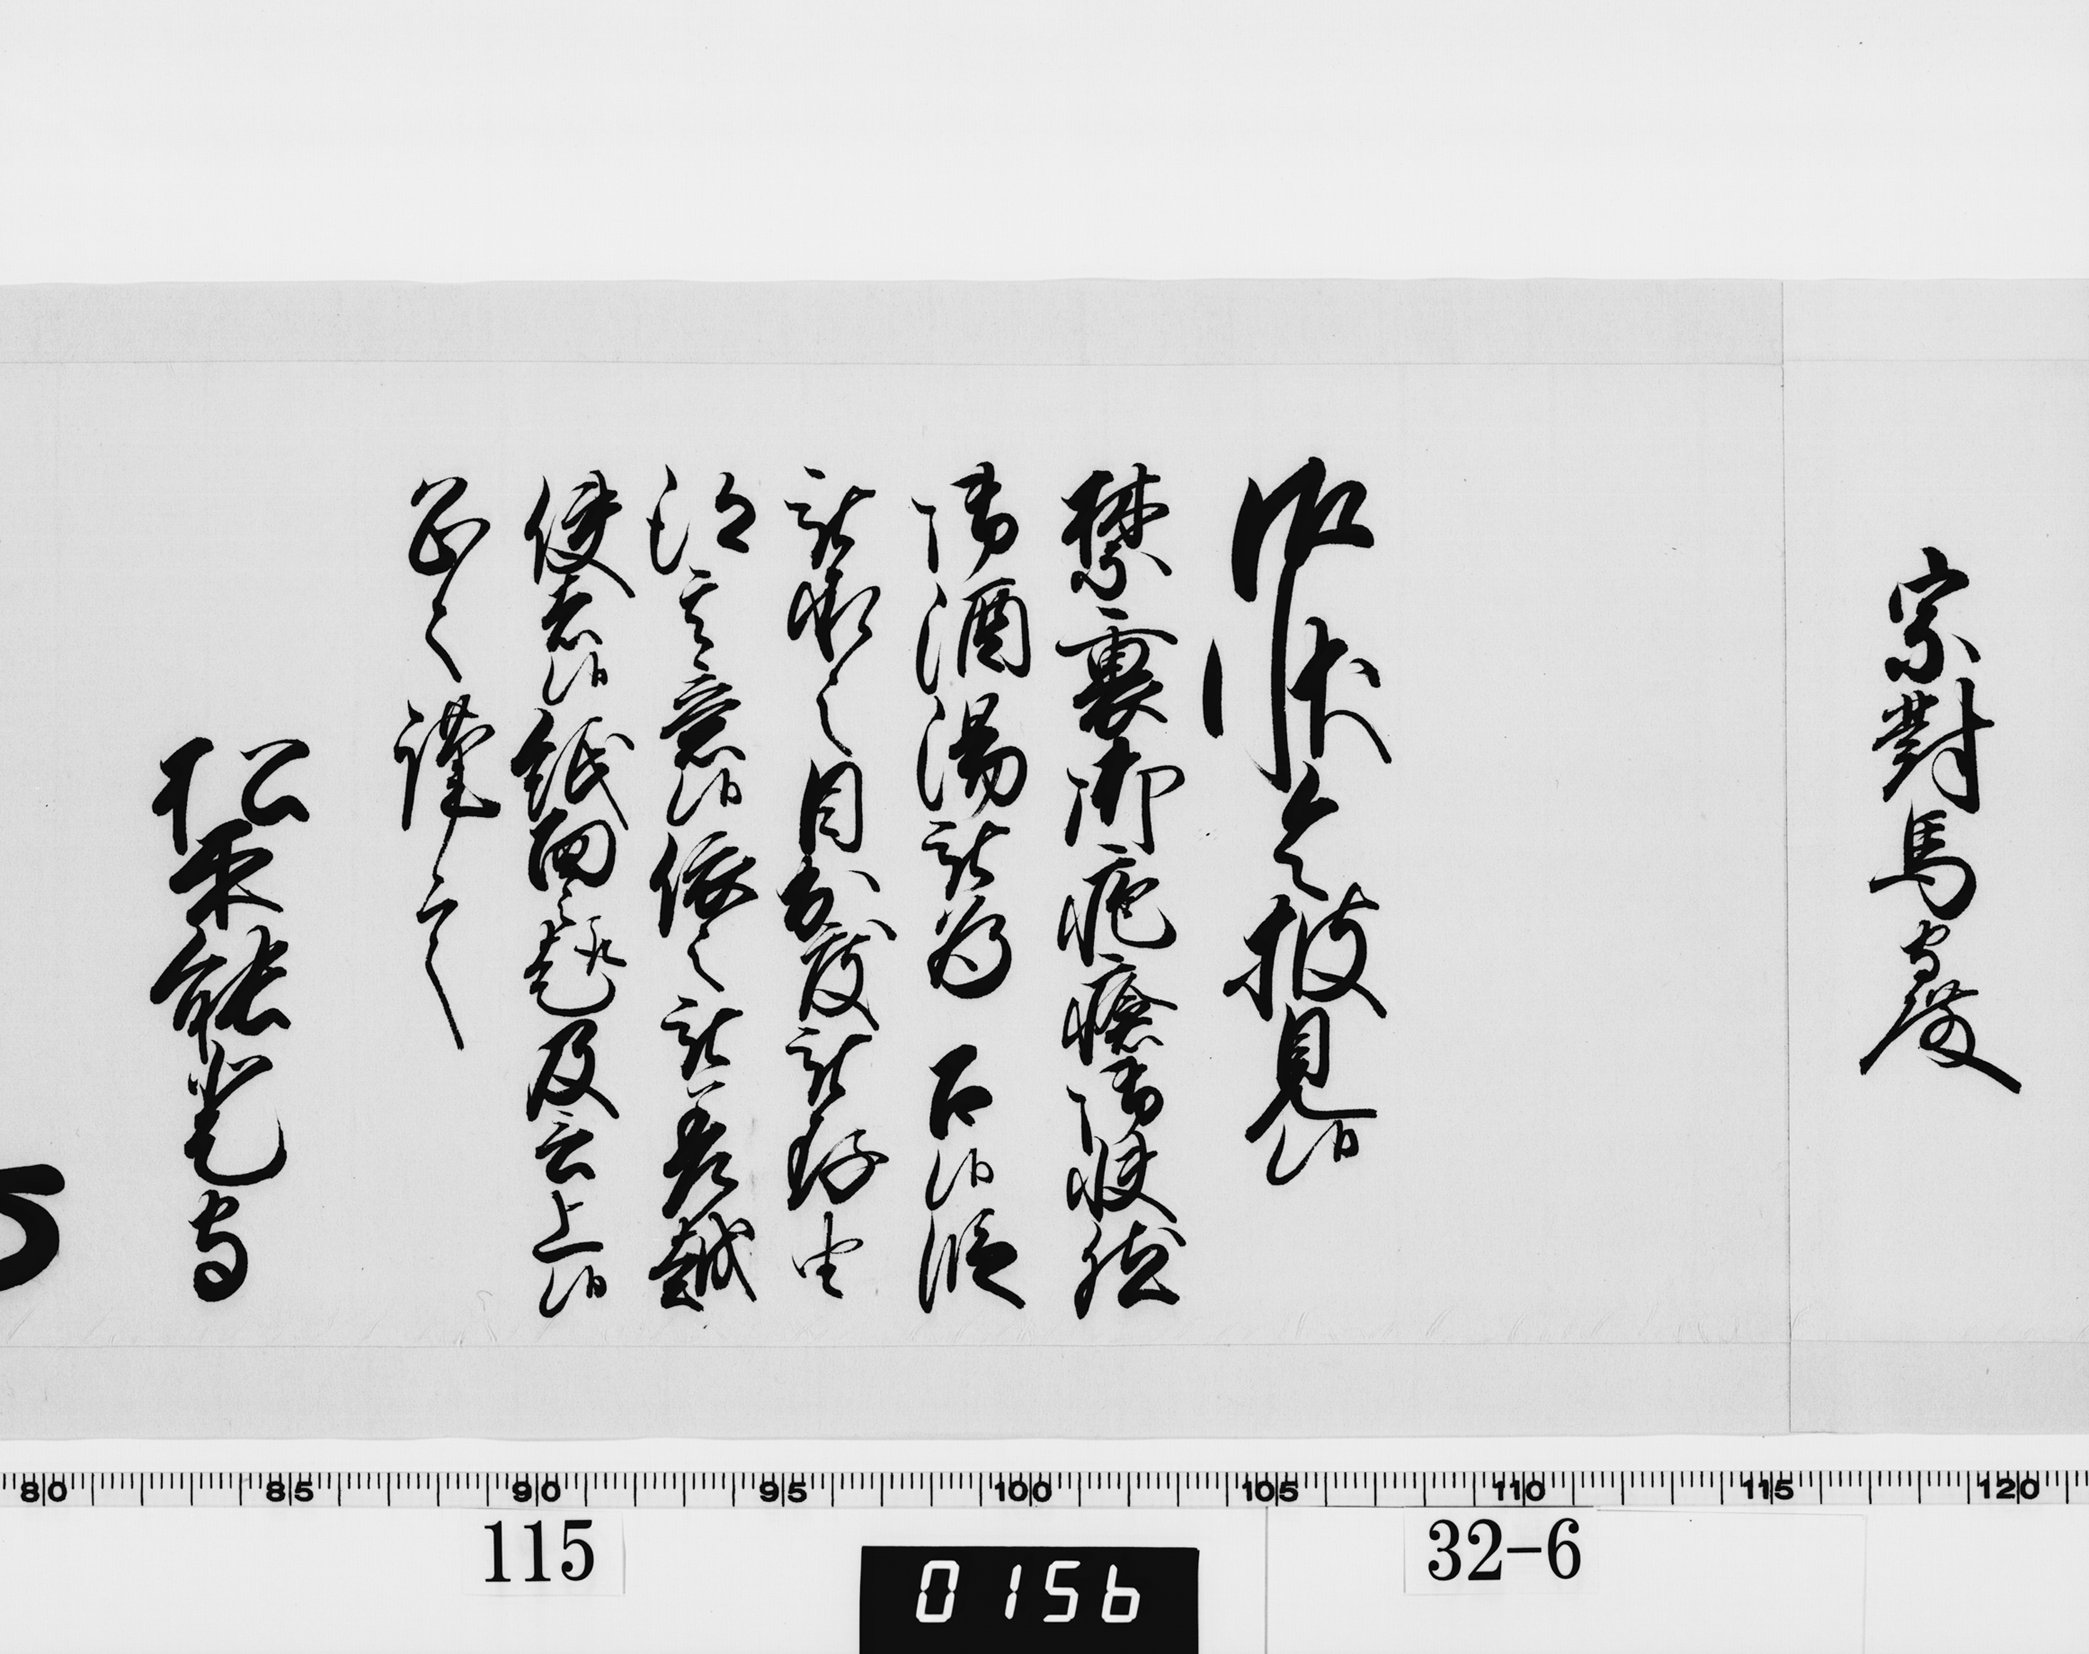 宗對馬守殿
御状令披見候
禁裏御疱瘡御收然
御酒湯被為 召候段
被承之目出度被存由
得其意候依之被差越
使者候紙面之趣及言上候
恐々謹言
松平能登守
80 85 90 95 100 105 110 115 120
115
0156
32-6